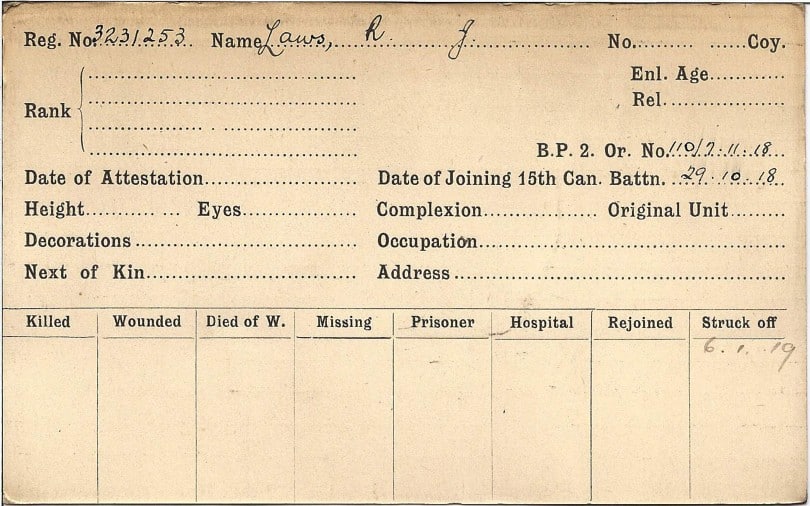 Reg. No. 3231253 Name Laws, R. J. No. Coy.
Enl. Age
Rel.
Rank
B.P. 2. Or. No. 110/7.11.18
Date of Attestation Date of Joining 15th Can. Battn. 29.10.18
Height Eyes Complexion Original Unit
Decorations Occupation
Next of Kin Address
Killed Wounded Died of W. Missing Prisoner Hospital Rejoined Struck off
6.1.19